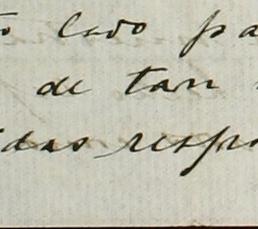 lado pa
de tan
idas respo